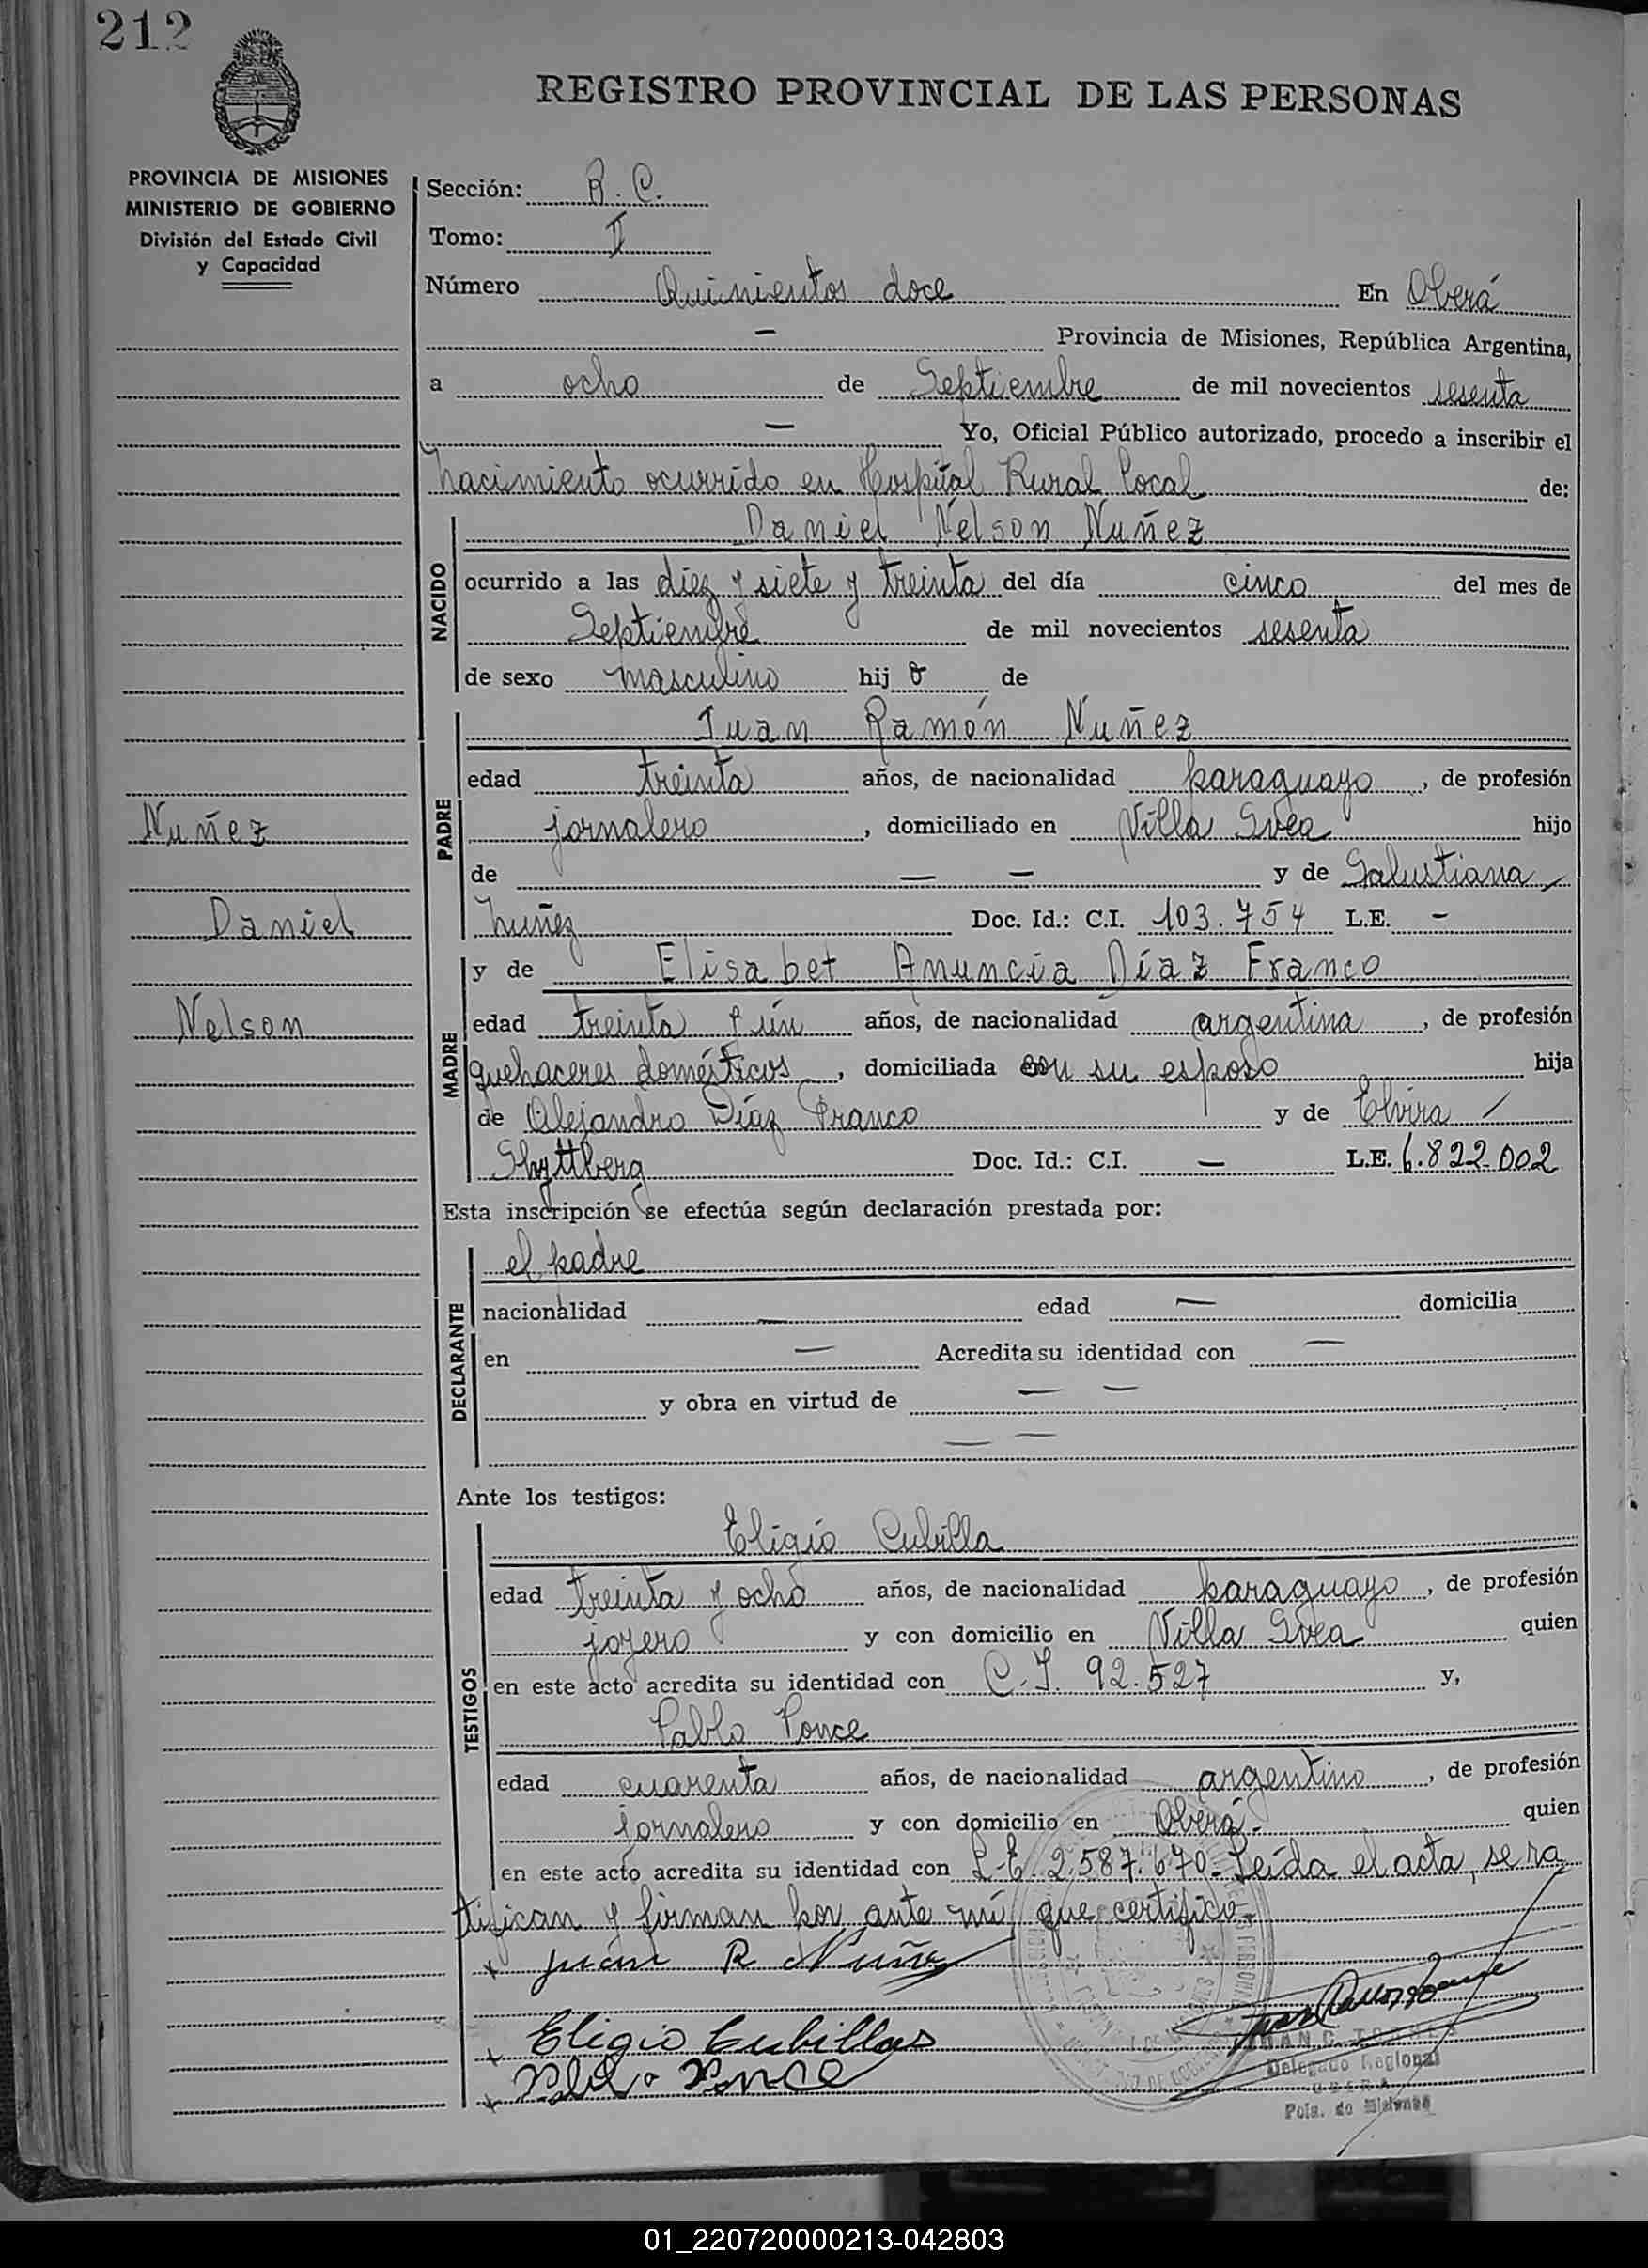 212
REGISTRO PROVINCIAL DE LAS PERSONAS
PROVINCIA DE MISIONES
MINISTERIO DE GOBIERNO
División del Estado Civil
y Capacidad
Sección: R. C.
Tomo: II
Número Quinientos doce En Oberá
— Provincia de Misiones, República Argentina,
a ocho de Septiembre de mil novecientos sesenta
— Yo, Oficial Público autorizado, procedo a inscribir el
nacimiento ocurrido en Hospital Rural Local de:
NACIDO
Daniel Nelson Nuñez
ocurrido a las diez y siete y treinta del día cinco del mes de
Septiembre de mil novecientos sesenta
de sexo masculino hij o de
PADRE
Juan Ramón Nuñez
edad treinta años, de nacionalidad paraguayo, de profesión
jornalero, domiciliado en Villa Svea hijo
de — — y de Salustiana
Nuñez Doc. Id.: C.I. 103.754 L.E. —
Nuñez
Daniel
Nelson
MADRE
y de Elisabet Anuncia Díaz Franco
edad treinta y ún años, de nacionalidad argentina, de profesión
quehaceres domésticos, domiciliada con su esposo hija
de Alejandro Díaz Franco y de Elvira
Shyttberg Doc. Id.: C.I. — L.E. 6.822.002
Esta inscripción se efectúa según declaración prestada por:
DECLARANTE
el padre
nacionalidad — edad — domicilia
en — Acredita su identidad con —
y obra en virtud de — —
— —
Ante los testigos:
TESTIGOS
Eligio Cubilla
edad treinta y ocho años, de nacionalidad paraguayo, de profesión
joyero y con domicilio en Villa Svea quien
en este acto acredita su identidad con C.I. 92.527 y,
Pablo Ponce
edad cuarenta años, de nacionalidad argentino, de profesión
jornalero y con domicilio en Oberá.- quien
en este acto acredita su identidad con L.E. 2.587.670.- Leída el acta, se ra
tifican y firman por ante mí que certifico.-
x Juan R Nuñez
x Eligio Cubillas
x Pablo Ponce
JUAN C. TORRES
Delegado Regional
OBERA
Pcia. de Misiones
01_220720000213-042803